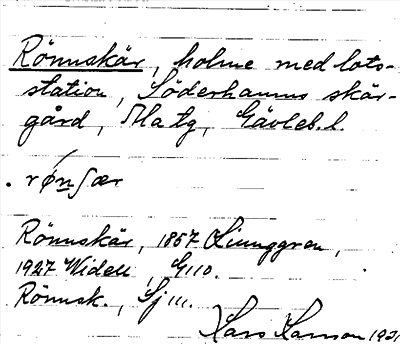 Rönnskär, holme med lots-
station, Söderhamns skär-
gård, Hlg, Gävleb. l.
. rø̀nʃær
Rönnskär, 1867 Ljunggren,
1927 Widell, G110.
Rönnsk., Sj 111.
Hans Hanson 1931